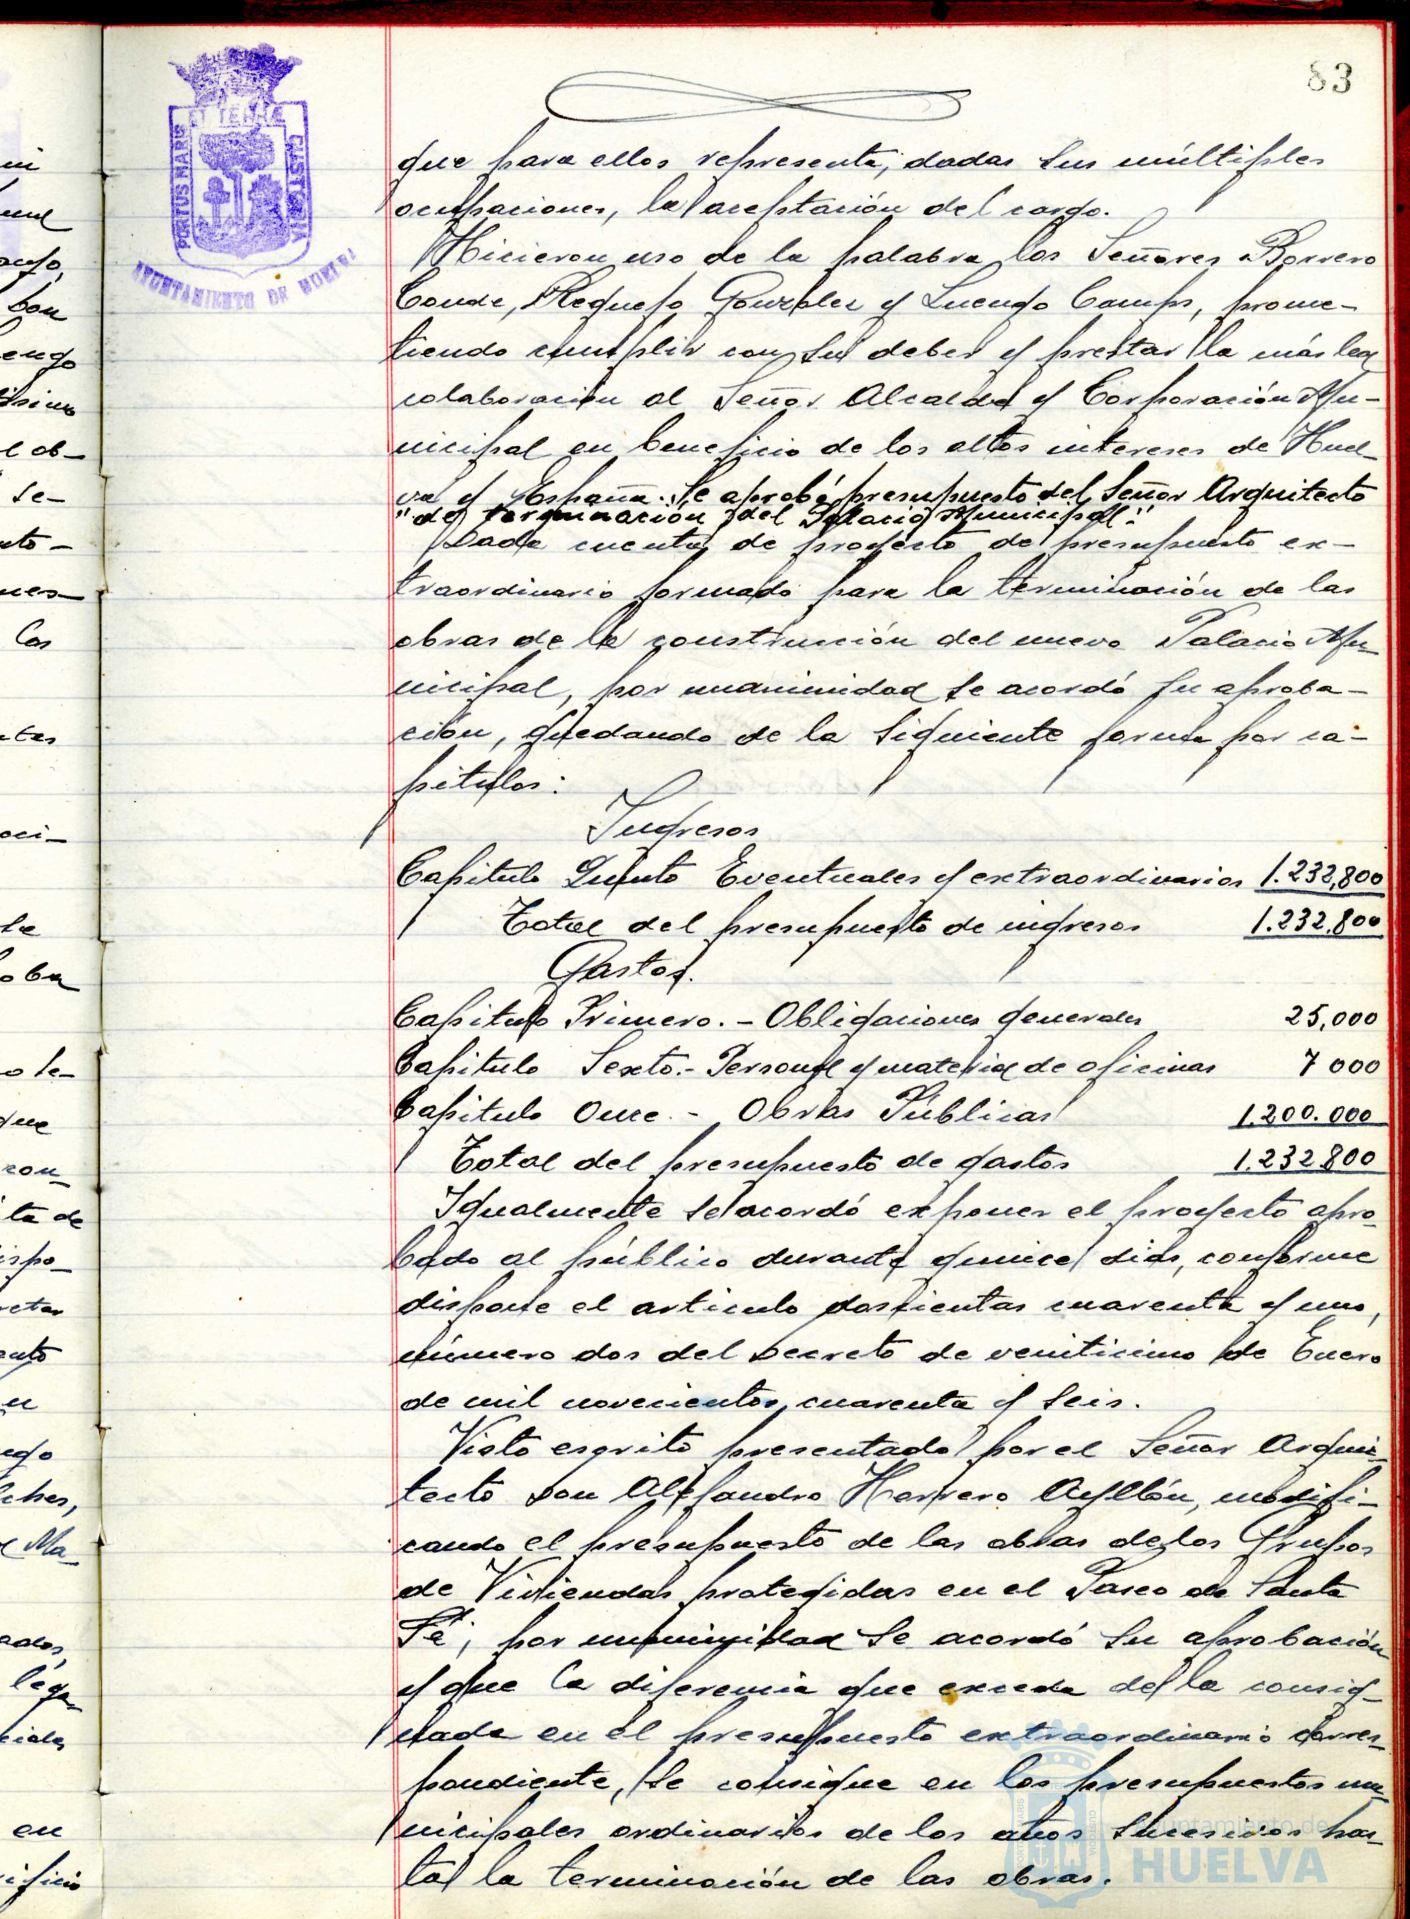 83
ET TERRÆ
PORTUS MARIS
CUSTODIA
AYUNTAMIENTO DE HUELVA
que para ellos representa, dadas sus múltiples
ocupaciones, la aceptación del cargo.
Hicieron uso de la palabra los Señores Borrero
Conde, Requejo González y Luengo Camps, prome-
tiendo cumplir con su deber y prestar la más leal
colaboración al Señor Alcalde y Corporación Mu-
nicipal en beneficio de los altos intereses de Huel
va y España. "Se aprobó presupuesto del Señor Arquitecto
"de terminación del Palacio Municipal."
Dada cuenta de proyecto de presupuesto ex-
traordinario formado para la terminación de las
obras de la construcción del nuevo Palacio Mu-
nicipal, por unanimidad se acordó su aproba-
ción, quedando de la siguiente forma por ca-
pitulos:
Ingresos
Capitulo Quinto Eventuales y extraordinarios 1.232,800
Total del presupuesto de ingresos 1.232.800
Gastos.
Capitulo Primero. - Obligaciones generales 25,000
Capitulo Sexto.- Personal y material de oficinas 7 000
Capitulo Once - Obras Públicas 1.200.000
Total del presupuesto de gastos 1.232.800
Igualmente se acordó exponer el proyecto apro-
bado al público durante quince dias, conforme
dispone el articulo doscientas cuarenta y uno,
número dos del Decreto de veniticinco de Enero
de mil novecientos cuarenta y seis.
Visto escrito presentado por el Señor Arqui-
tecto Don Alejandro Herrero Ayllón, modifi-
cando el presupuesto de las obras de los Grupos
de Viviendas protegidas en el Paseo de Santa
Fé, por unanimidad se acordó su aprobación
y que la diferencia que exceda de la consig-
nada en el presupuesto extraordinario corres-
pondiente, se consigne en los presupuestos mu-
nicipales ordinarios de los años sucesivos has-
ta la terminación de las obras.
Ayuntamiento de
HUELVA